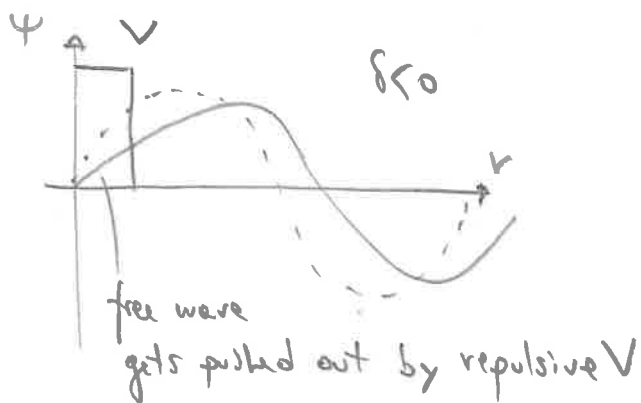 ψ V
δ<0
r
free wave
gets pushed out by repulsive V